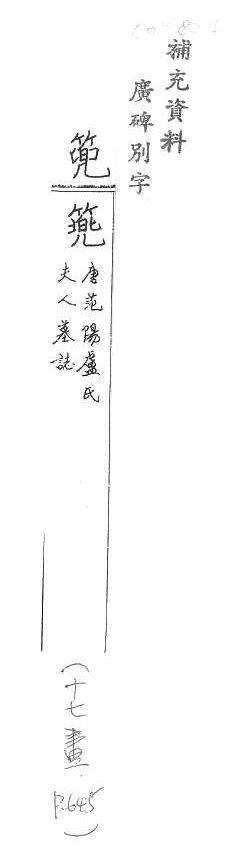 補充資料
廣碑別字
篼
唐范陽盧氏
夫人墓誌
（十七畫 P.645）